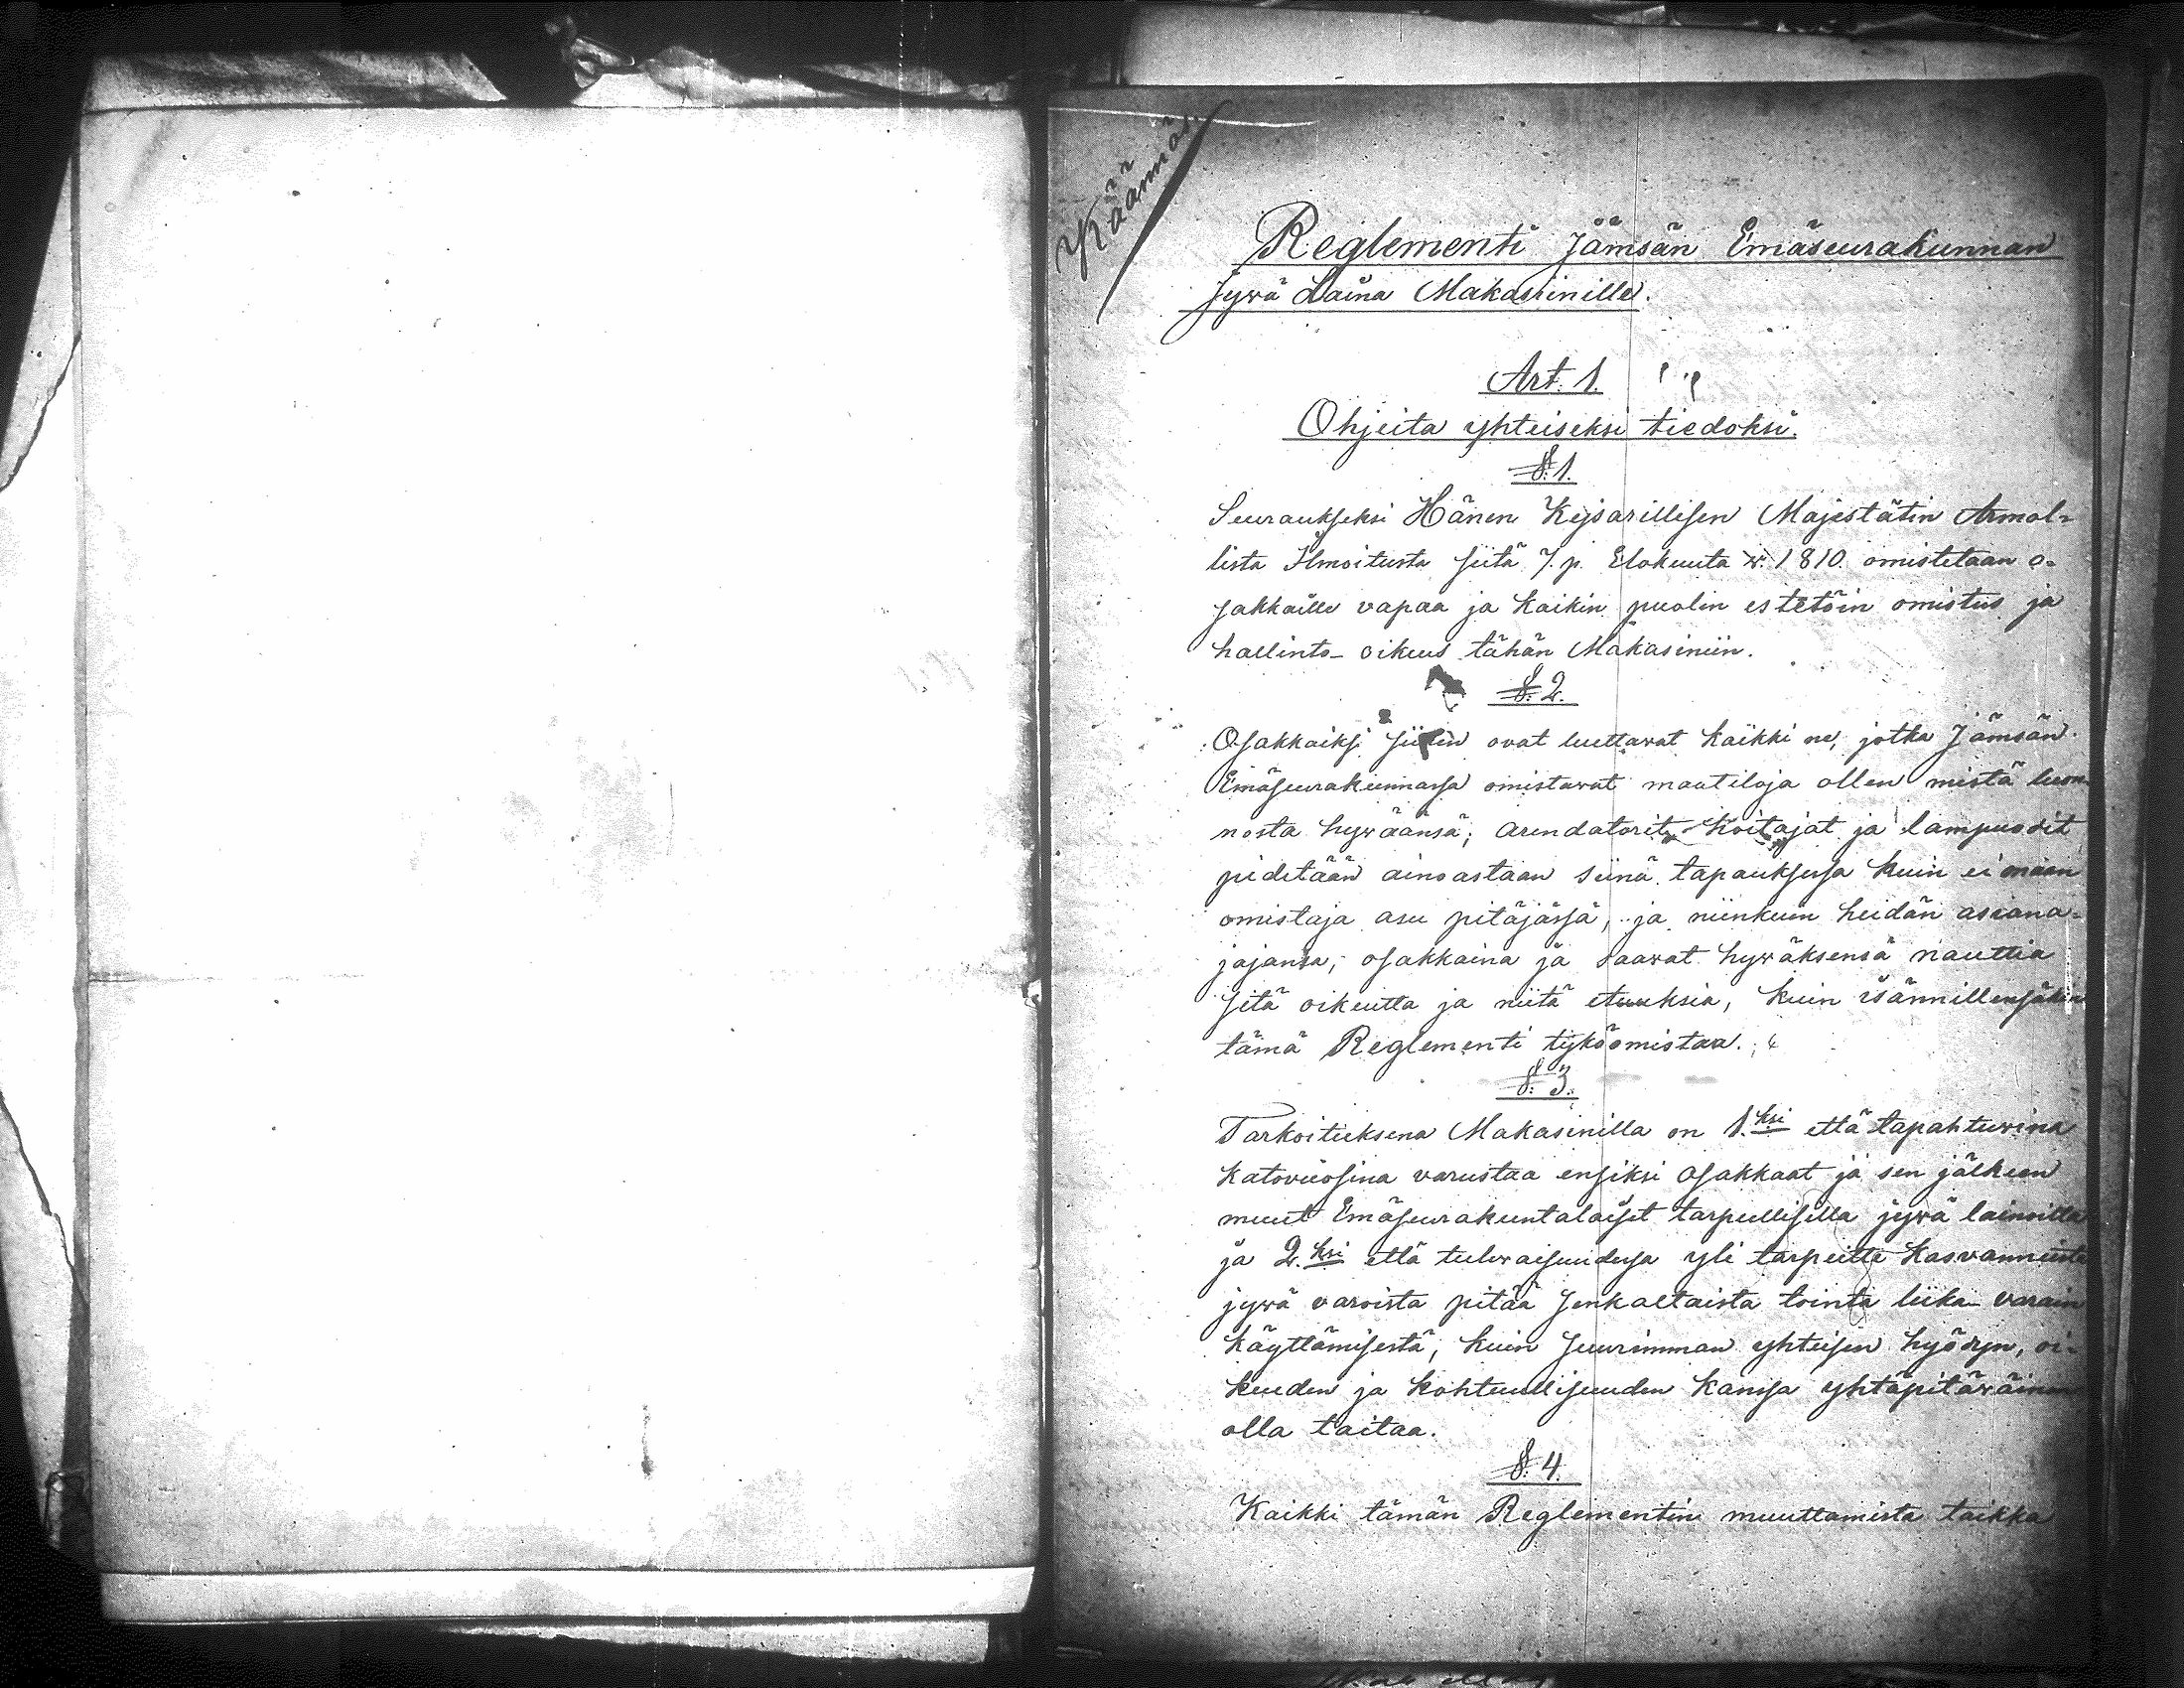 Käännös.
Reglementi Jämsän Emäseurakunnan
Jywä Laina Makasinille.
Art. 1.
Ohjeita yhteiseksi tiedoksi.
§. 1.
Seuraukseksi Hänen Kejsarillisen Majestätin Armol-
lista Ilmoitusta siitä 7. p. Elokuuta w. 1810 omistetaan o-
sakkaille vapaa ja kaikin puolin estetöin omistus ja
hallinto- oikeus tähän Makasiniin.
§. 2.
Osakkaiksi siihen ovat luettavat kaikki ne, jotka Jämsän
Emäseurakunnassa omistavat maatiloja ollen mistä luon-
nosta hywäänsä; arendatorit, hoitajat ja lampuodit
pidetään ainoastaan siinä tapauksessa kuin ei maan
omistaja asu pitäjässä, ja niinkuin heidän asiana-
jajansa, osakkaina ja saavat hywäksensä nauttia
sitä oikeutta ja niitä etuuksia, kuin isännillensäkin
tämä Reglementi tyköomistaa.
§. 3.
Tarkoituksena Makasinilla on 1.ksi että tapahtuvina
katovuosina varustaa ensiksi osakkaat ja sen jälkeen
muut Emäseurakuntalaiset tarpeellisilla jywä lainoilla
ja 2.ksi että tulevaisuudessa yli tarpeitte kasvanneista
jywä varoista pitää senkaltaista tointa liika- varain
käyttämisestä, kuin suurimman yhteisen hyödyn, oi-
keuden ja kohtuullisuuden kanssa yhtäpitäwäinen
olla taitaa.
§. 4.
Kaikki tämän Reglementin muuttamista taikka